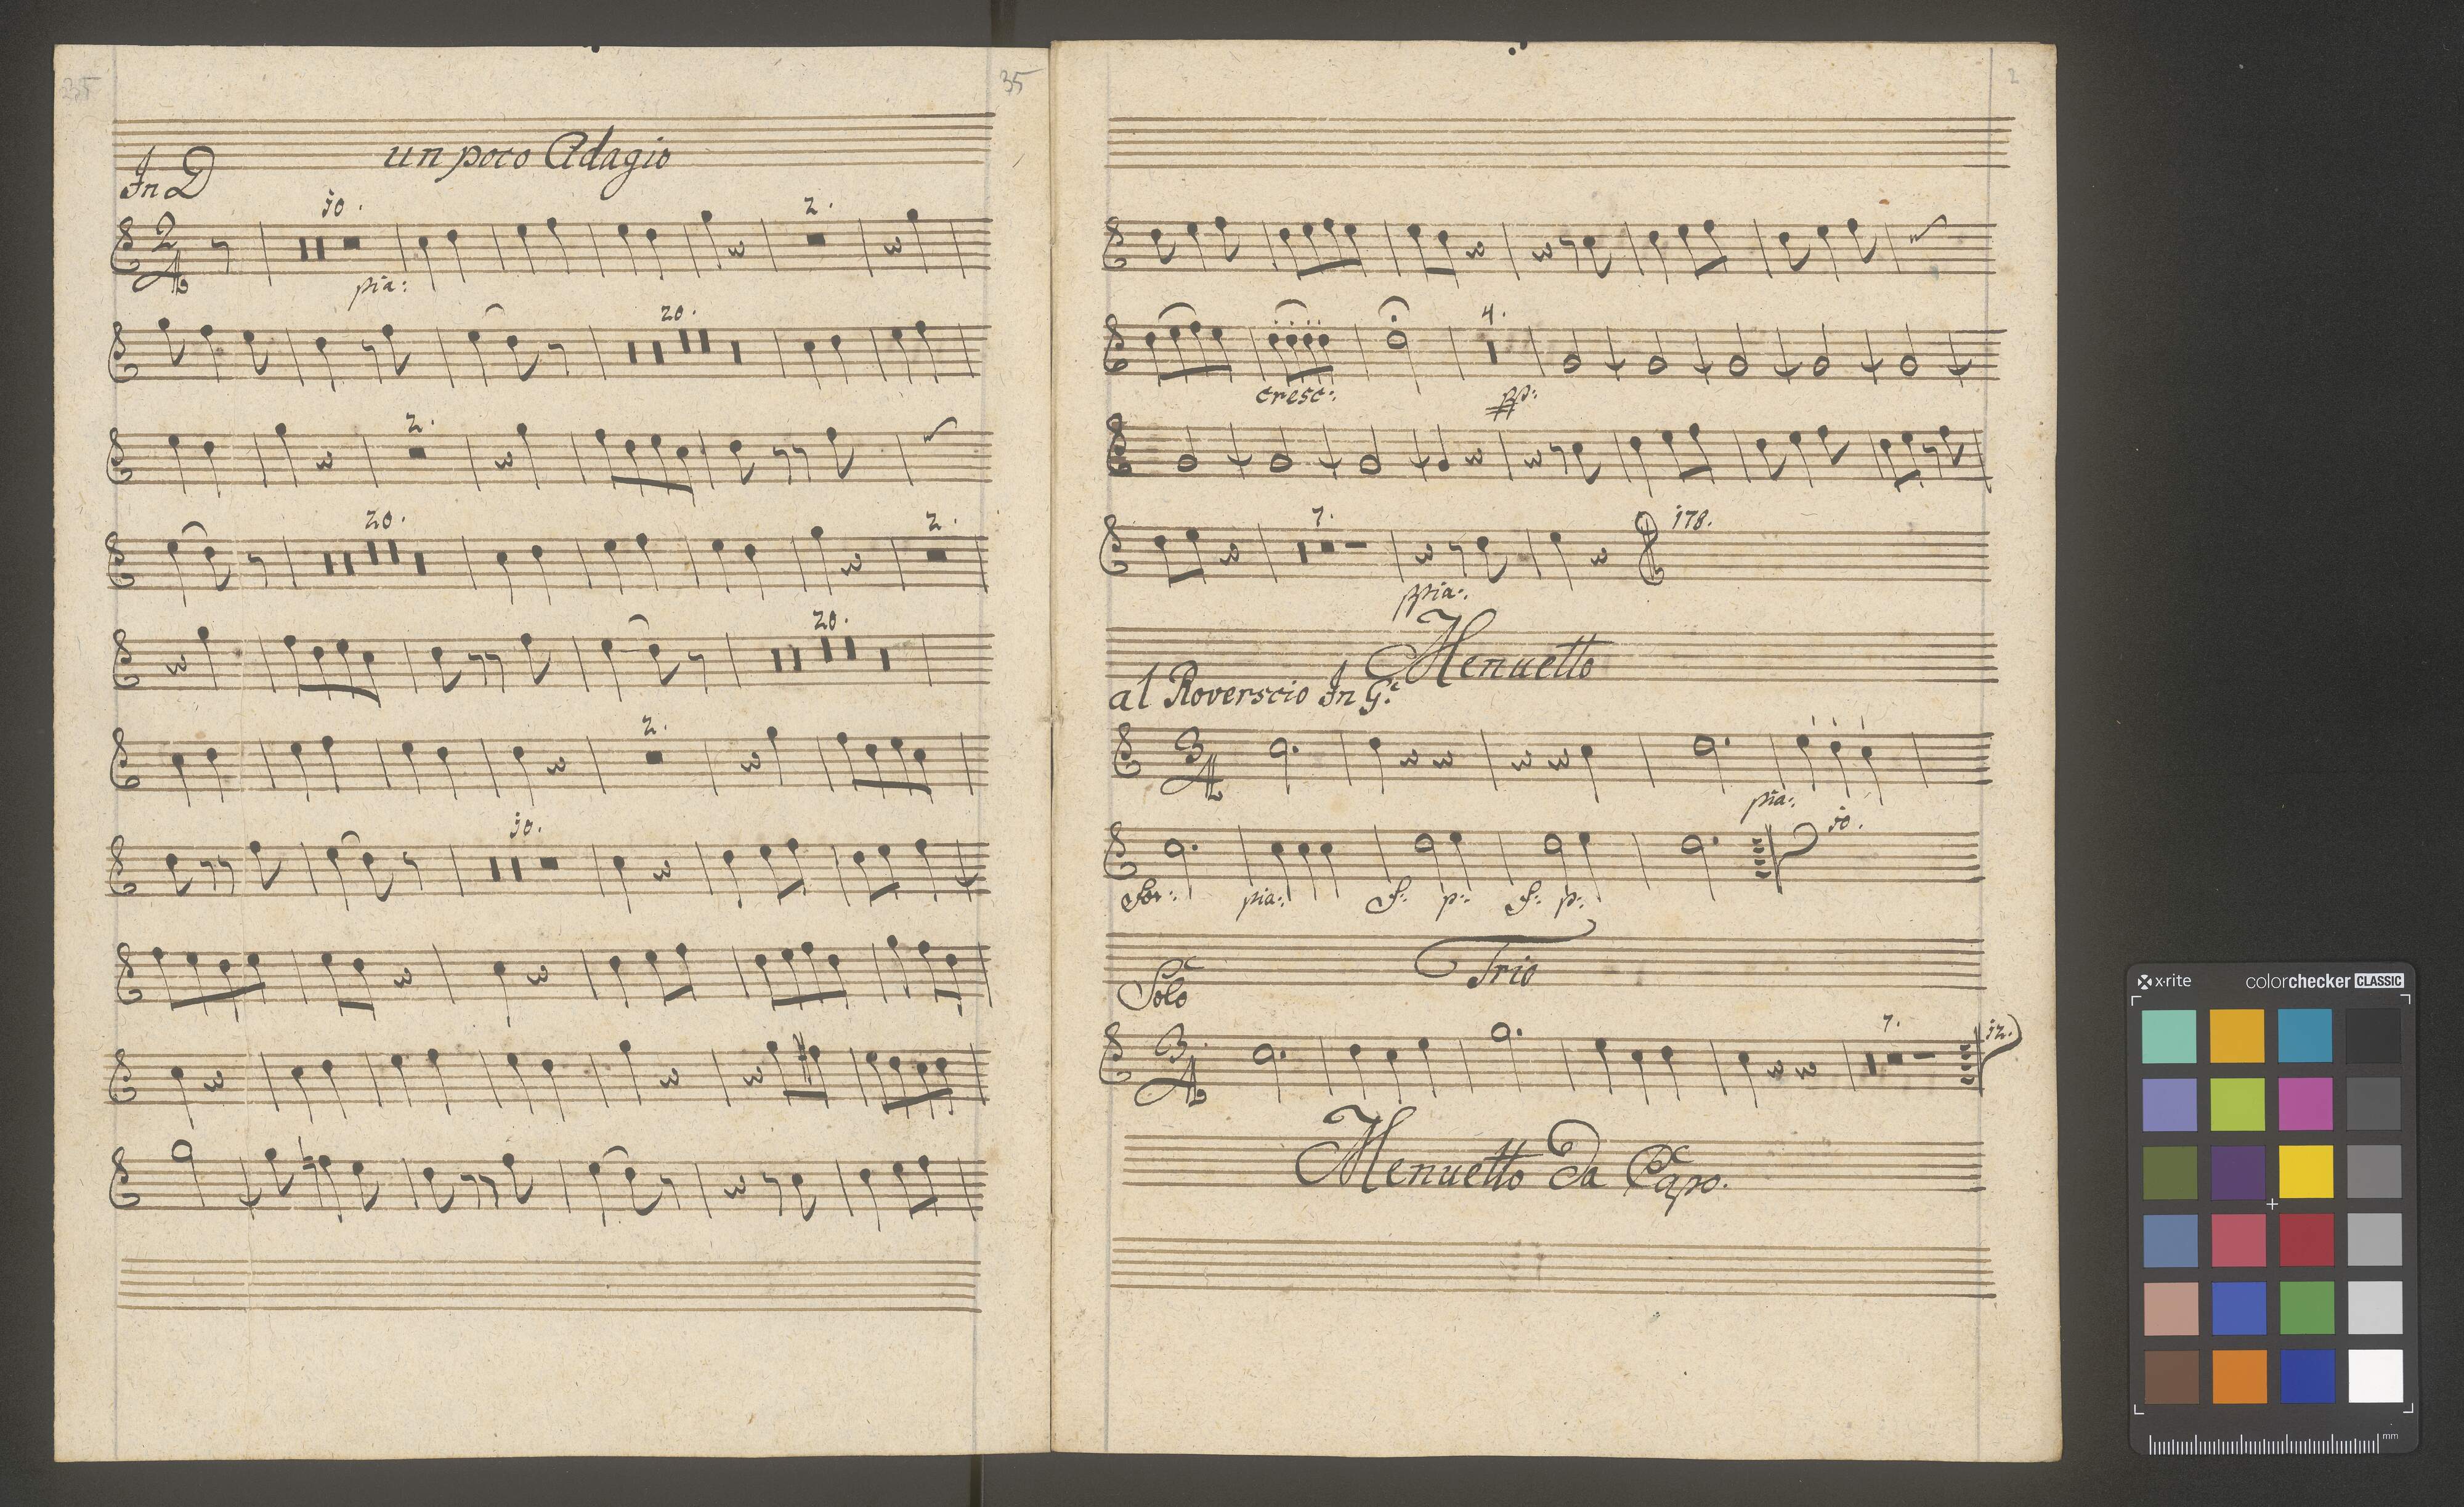 35
35
un poco Adagio
In D
10.
2.
2
4
pia:
20.
2.
20.
2.
20.
2.
10.
2
4.
cresc:
pp:
7.
178.
ppia:
Menuetto
al Roverscio In G:
3
4
pia:
10.
for: pia: f: p: f: p:
Trio
Solo
3
4
7.
12.
Menuetto Da Capo.
x-rite colorchecker CLASSIC
mm